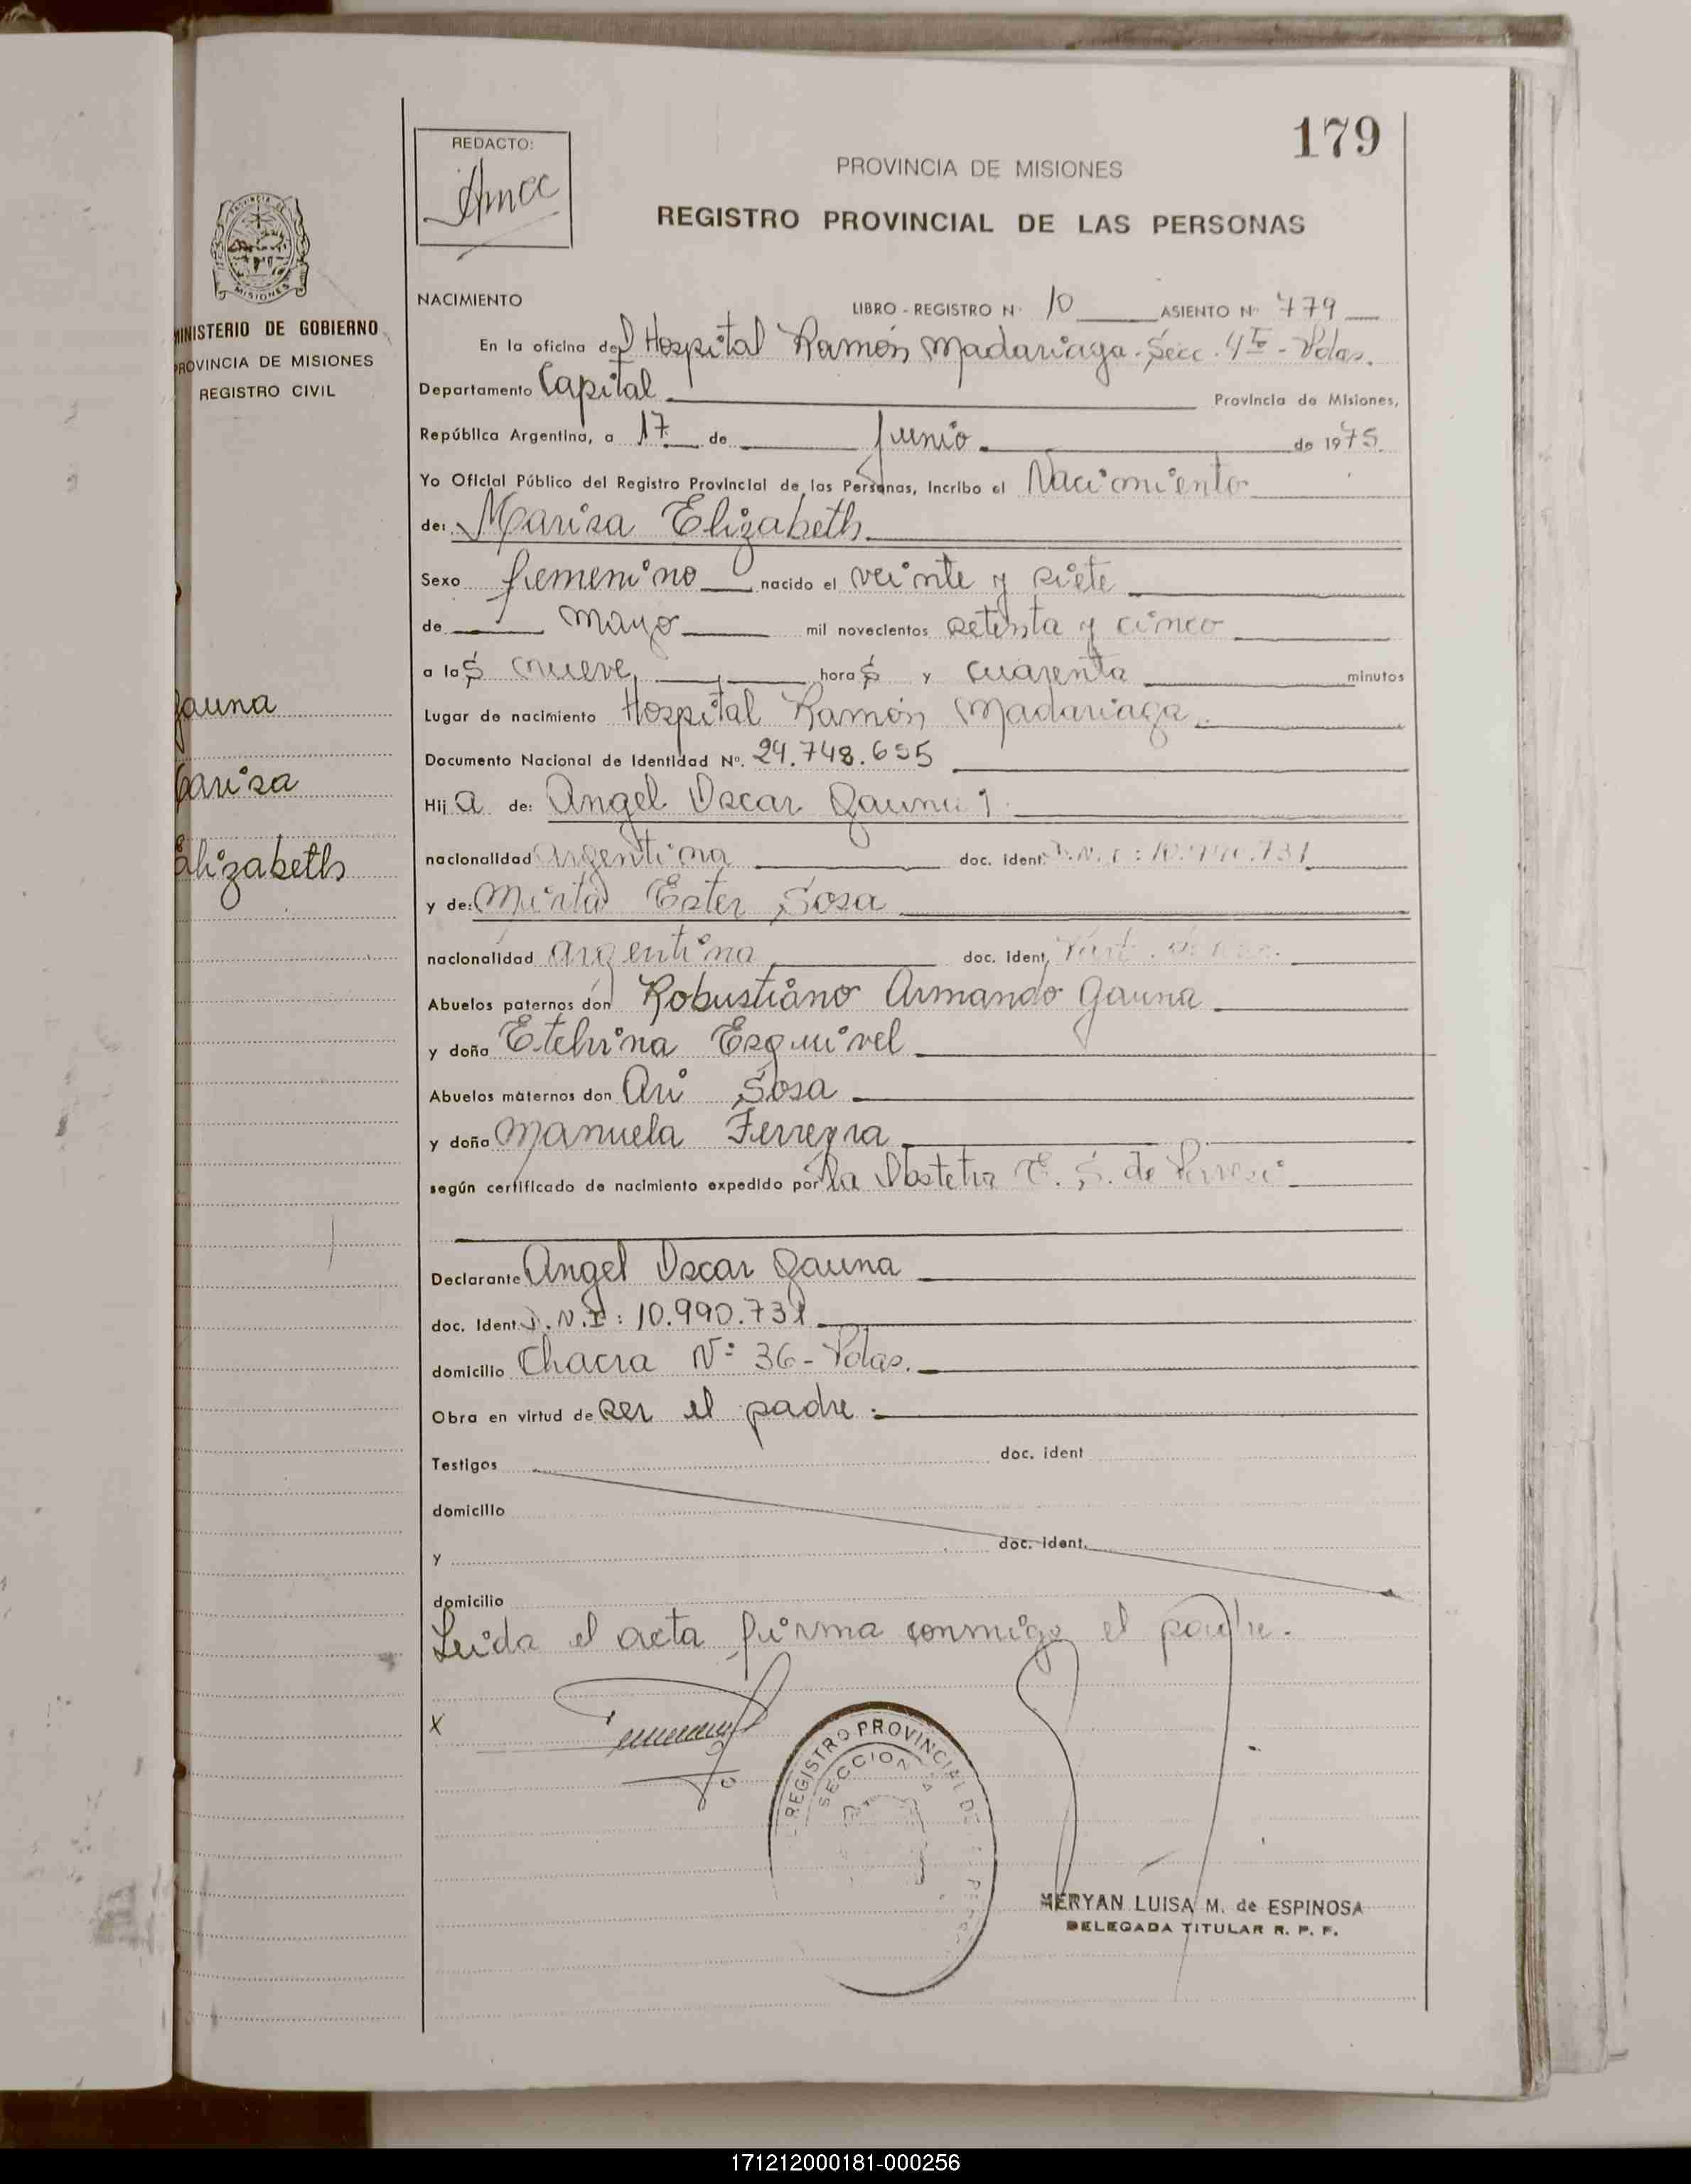 179
REDACTO:
PROVINCIA DE MISIONES
REGISTRO PROVINCIAL DE LAS PERSONAS
MISIONES
MINISTERIO DE GOBIERNO
PROVINCIA DE MISIONES
REGISTRO CIVIL
Gauna
Marisa
Elizabeth
NACIMIENTO LIBRO - REGISTRO N° 10 ASIENTO N° 779
En la oficina del Hospital Ramón Madariaga - Secc. 4ta - Pdas.
Departamento Capital Provincia de Misiones,
República Argentina, a 17 de Junio de 1975.
Yo Oficial Público del Registro Provincial de las Personas, Incribo el Nacimiento
de: Marisa Elizabeth
Sexo femenino nacido el veinte y siete
de mayo mil novecientos setenta y cinco
a las nueve horas y cuarenta minutos
Lugar de nacimiento Hospital Ramón Madariaga.
Documento Nacional de Identidad N°. 24.748.655
Hija de: Angel Oscar Gauna
nacionalidad argentina doc. ident. D.N.I: 10.990.731
y de: Mirta Ester Sosa
nacionalidad argentina doc. ident.
Abuelos paternos don Robustiano Armando Gauna
y doña Etelvina Esquivel
Abuelos maternos don Ari Sosa
y doña Manuela Ferreyra
según certificado de nacimiento expedido por la Obstetra E. S. de
Declarante Angel Oscar Gauna
doc. Ident. D.N.I: 10.990.731
domicilio Chacra N° 36 - Pdas.
Obra en virtud de ser el padre.
Testigos doc. ident
domicilio
y doc. ident.
domicilio
Leida el acta firma conmigo el padre.
X
REGISTRO PROVINCIAL DE
SECCION 4
MERYAN LUISA M. de ESPINOSA
DELEGADA TITULAR R. P. P.
171212000181-000256